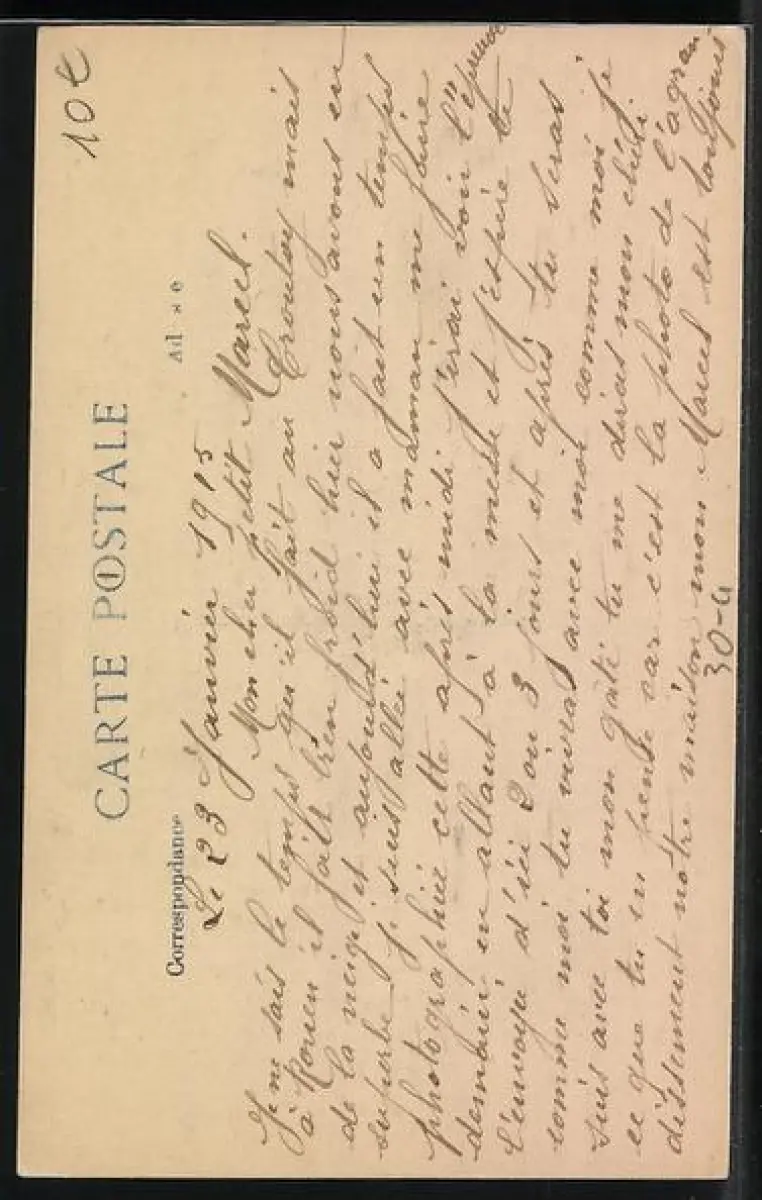 10 €
CARTE POSTALE
Correspondance
Le 23 Janvier 1915
Mon cher petit Marcel.
Je ne sais le temps qu'il fait au Crouloy mais
à Rouen il fait bien froid hier nous avons eu
de la neige et aujourd'hui il a fait un temps
superbe je suis allée avec maman me faire
photographiée cette après midi j'irai voir l'épreuve
demain en allant à la messe et j'espère te
l'envoyer d'ici 2 ou 3 jours et après tu seras
comme moi tu vivras avec moi comme moi je
suis avec toi mon gâté tu me diras mon chéri
ce que tu en pense car c'est la photo de l'agran-
dissement notre maison mon Marcel est toujours
30-4